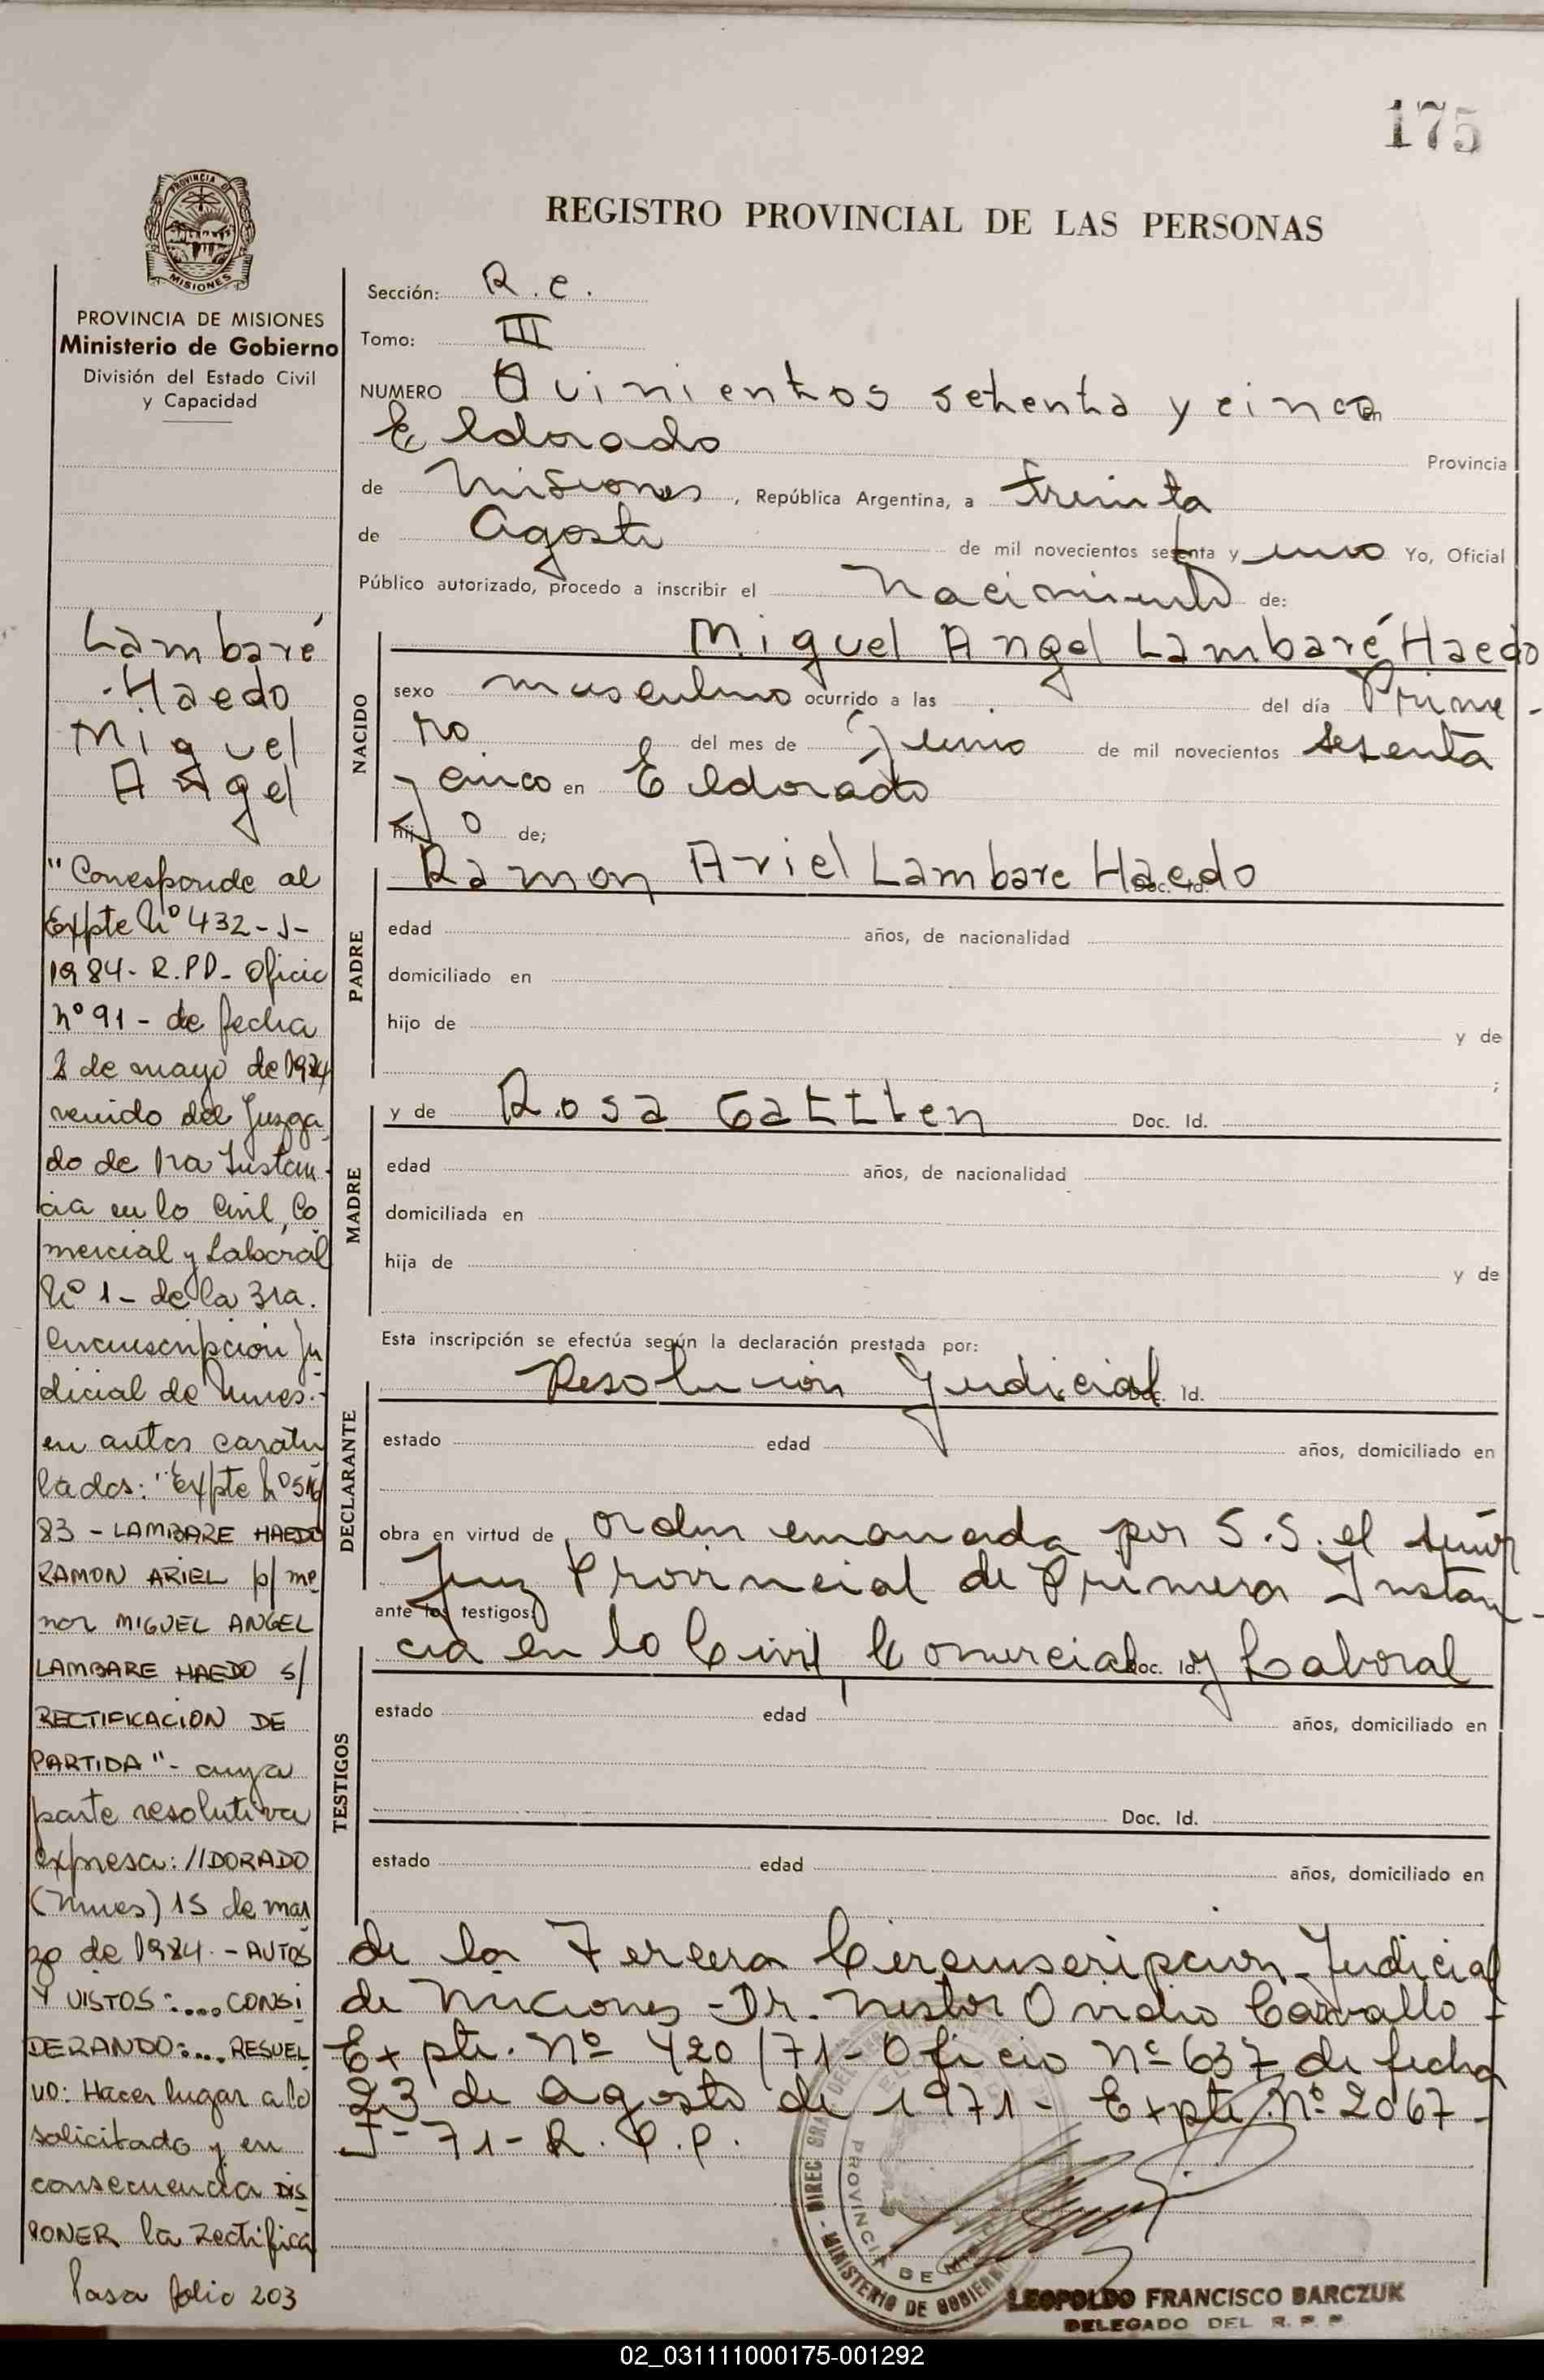 175
PROVINCIA DE
MISIONES
REGISTRO PROVINCIAL DE LAS PERSONAS
PROVINCIA DE MISIONES
Ministerio de Gobierno
División del Estado Civil
y Capacidad
Lambaré
Haedo
Miguel
Angel
"Corresponde al
Expte Nº 432-J-
1984- R.P.P- Oficio
nº 91 - de fecha
2 de mayo de 1984
venido del Juzga
do de 1ra Instan-
cia en lo Civil, Co
mercial y Laboral
Nº 1 - de la 3ra.
Circunscripcion Ju
dicial de Mnes.-
en autos caratu
lados: "Expte Nº 516
83 - LAMBARE HAEDO
RAMON ARIEL p/ me
nor MIGUEL ANGEL
LAMBARE HAEDO s/
RECTIFICACION DE
PARTIDA"- cuya
parte resolutiva
expresa: //DORADO
(Mnes) 15 de mar
zo de 1984. - AUTOS
Y VISTOS:.... CONSI
DERANDO:.... RESUEL
VO: Hacer lugar a lo
solicitado y en
consecuencia DIS
PONER la rectifica
Pasa folio 203
Sección: R.C.
Tomo: III
NUMERO Quinientos setenta y cinco en
Eldorado Provincia
de Misiones, República Argentina, a treinta
de Agosto de mil novecientos setenta y uno Yo, Oficial
Público autorizado, procedo a inscribir el Nacimiento de:
NACIDO
Miguel Angel Lambaré Haedo
sexo masculino ocurrido a las del día Prime-
ro del mes de Junio de mil novecientos sesenta
y cinco en Eldorado
hijo de;
PADRE
Ramon Ariel Lambare Haedo Doc. Id.
edad años, de nacionalidad
domiciliado en
hijo de y de
;
MADRE
y de Rosa Gattlen Doc. Id.
edad años, de nacionalidad
domiciliada en
hija de y de
Esta inscripción se efectúa según la declaración prestada por:
DECLARANTE
Resolucion Judicial Doc. Id.
estado edad años, domiciliado en
obra en virtud de orden emanada por S.S. el señor
Juez Provincial de Primera Instan-
ante los testigos:
cia en lo Civil Comercial y Laboral Doc. Id.
TESTIGOS
estado edad años, domiciliado en
Doc. Id.
estado edad años, domiciliado en
de la Tercera Circunscripcion Judicial
de Misiones - Dr. Nestor Ovidio Carvallo -
Expte. Nº 420/71- Oficio Nº 637 de fecha
23 de agosto de 1971- Expte Nº 2067-
J-71-R.P.P.
MINISTERIO DE GOBIERNO
PROVINCIA DE
LEOPOLDO FRANCISCO BARCZUK
DELEGADO DEL R. P. P.
02_031111000175-001292